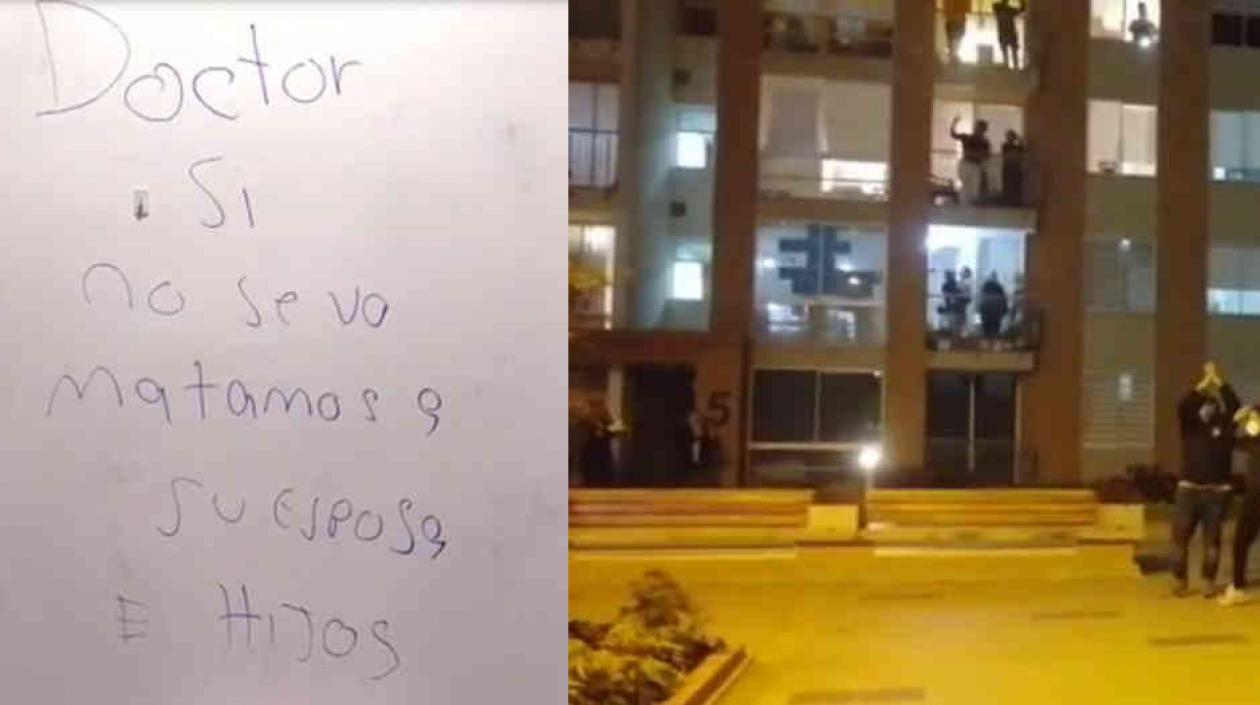 Doctor
Si
no se va
matamos a
su esposa
E HIJOS
5